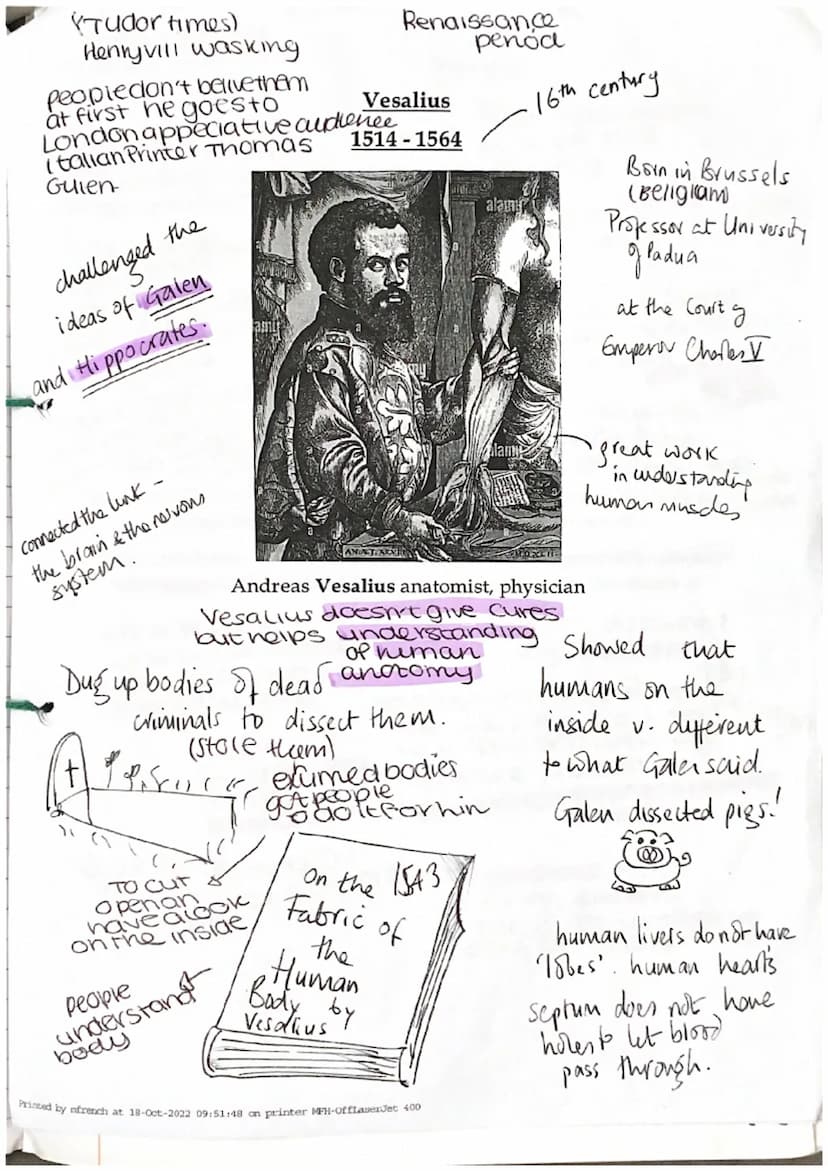 (Tudor times)
Henry viii was king
Renaissance
period
People don't belive them
at first he goes to
London appeciative audience
Italian Printer Thomas
Gulen
Vesalius
1514 - 1564
16th century
Born in Brussels
(Beligium)
Professor at University
of Padua
at the Court of
Emperor Charles V
challenged the
ideas of Galen
and Hippocrates.
alamy
alamy
great work
in understanding
human muscles
connected the link -
the brain & the nervous
system.
Andreas Vesalius anatomist, physician
Vesalius doesn't give cures
but helps understanding
of human
anotomy
Dug up bodies of dead
criminals to dissect them.
(stole them)
exumed bodies
got people
to do it for him
Showed that
humans on the
inside v. different
to what Galen said.
Galen dissected pigs!
To cut
open an
have a look
on the inside
people
understand
body
On the 1543
Fabric of
the
Human
Body by
Vesalius
human livers do not have
'lobes'. human heart's
septum does not have
holes to let blood
pass through.
Printed by nfrench at 18-Oct-2022 09:51:48 on printer MFH-OffLaserJet 400